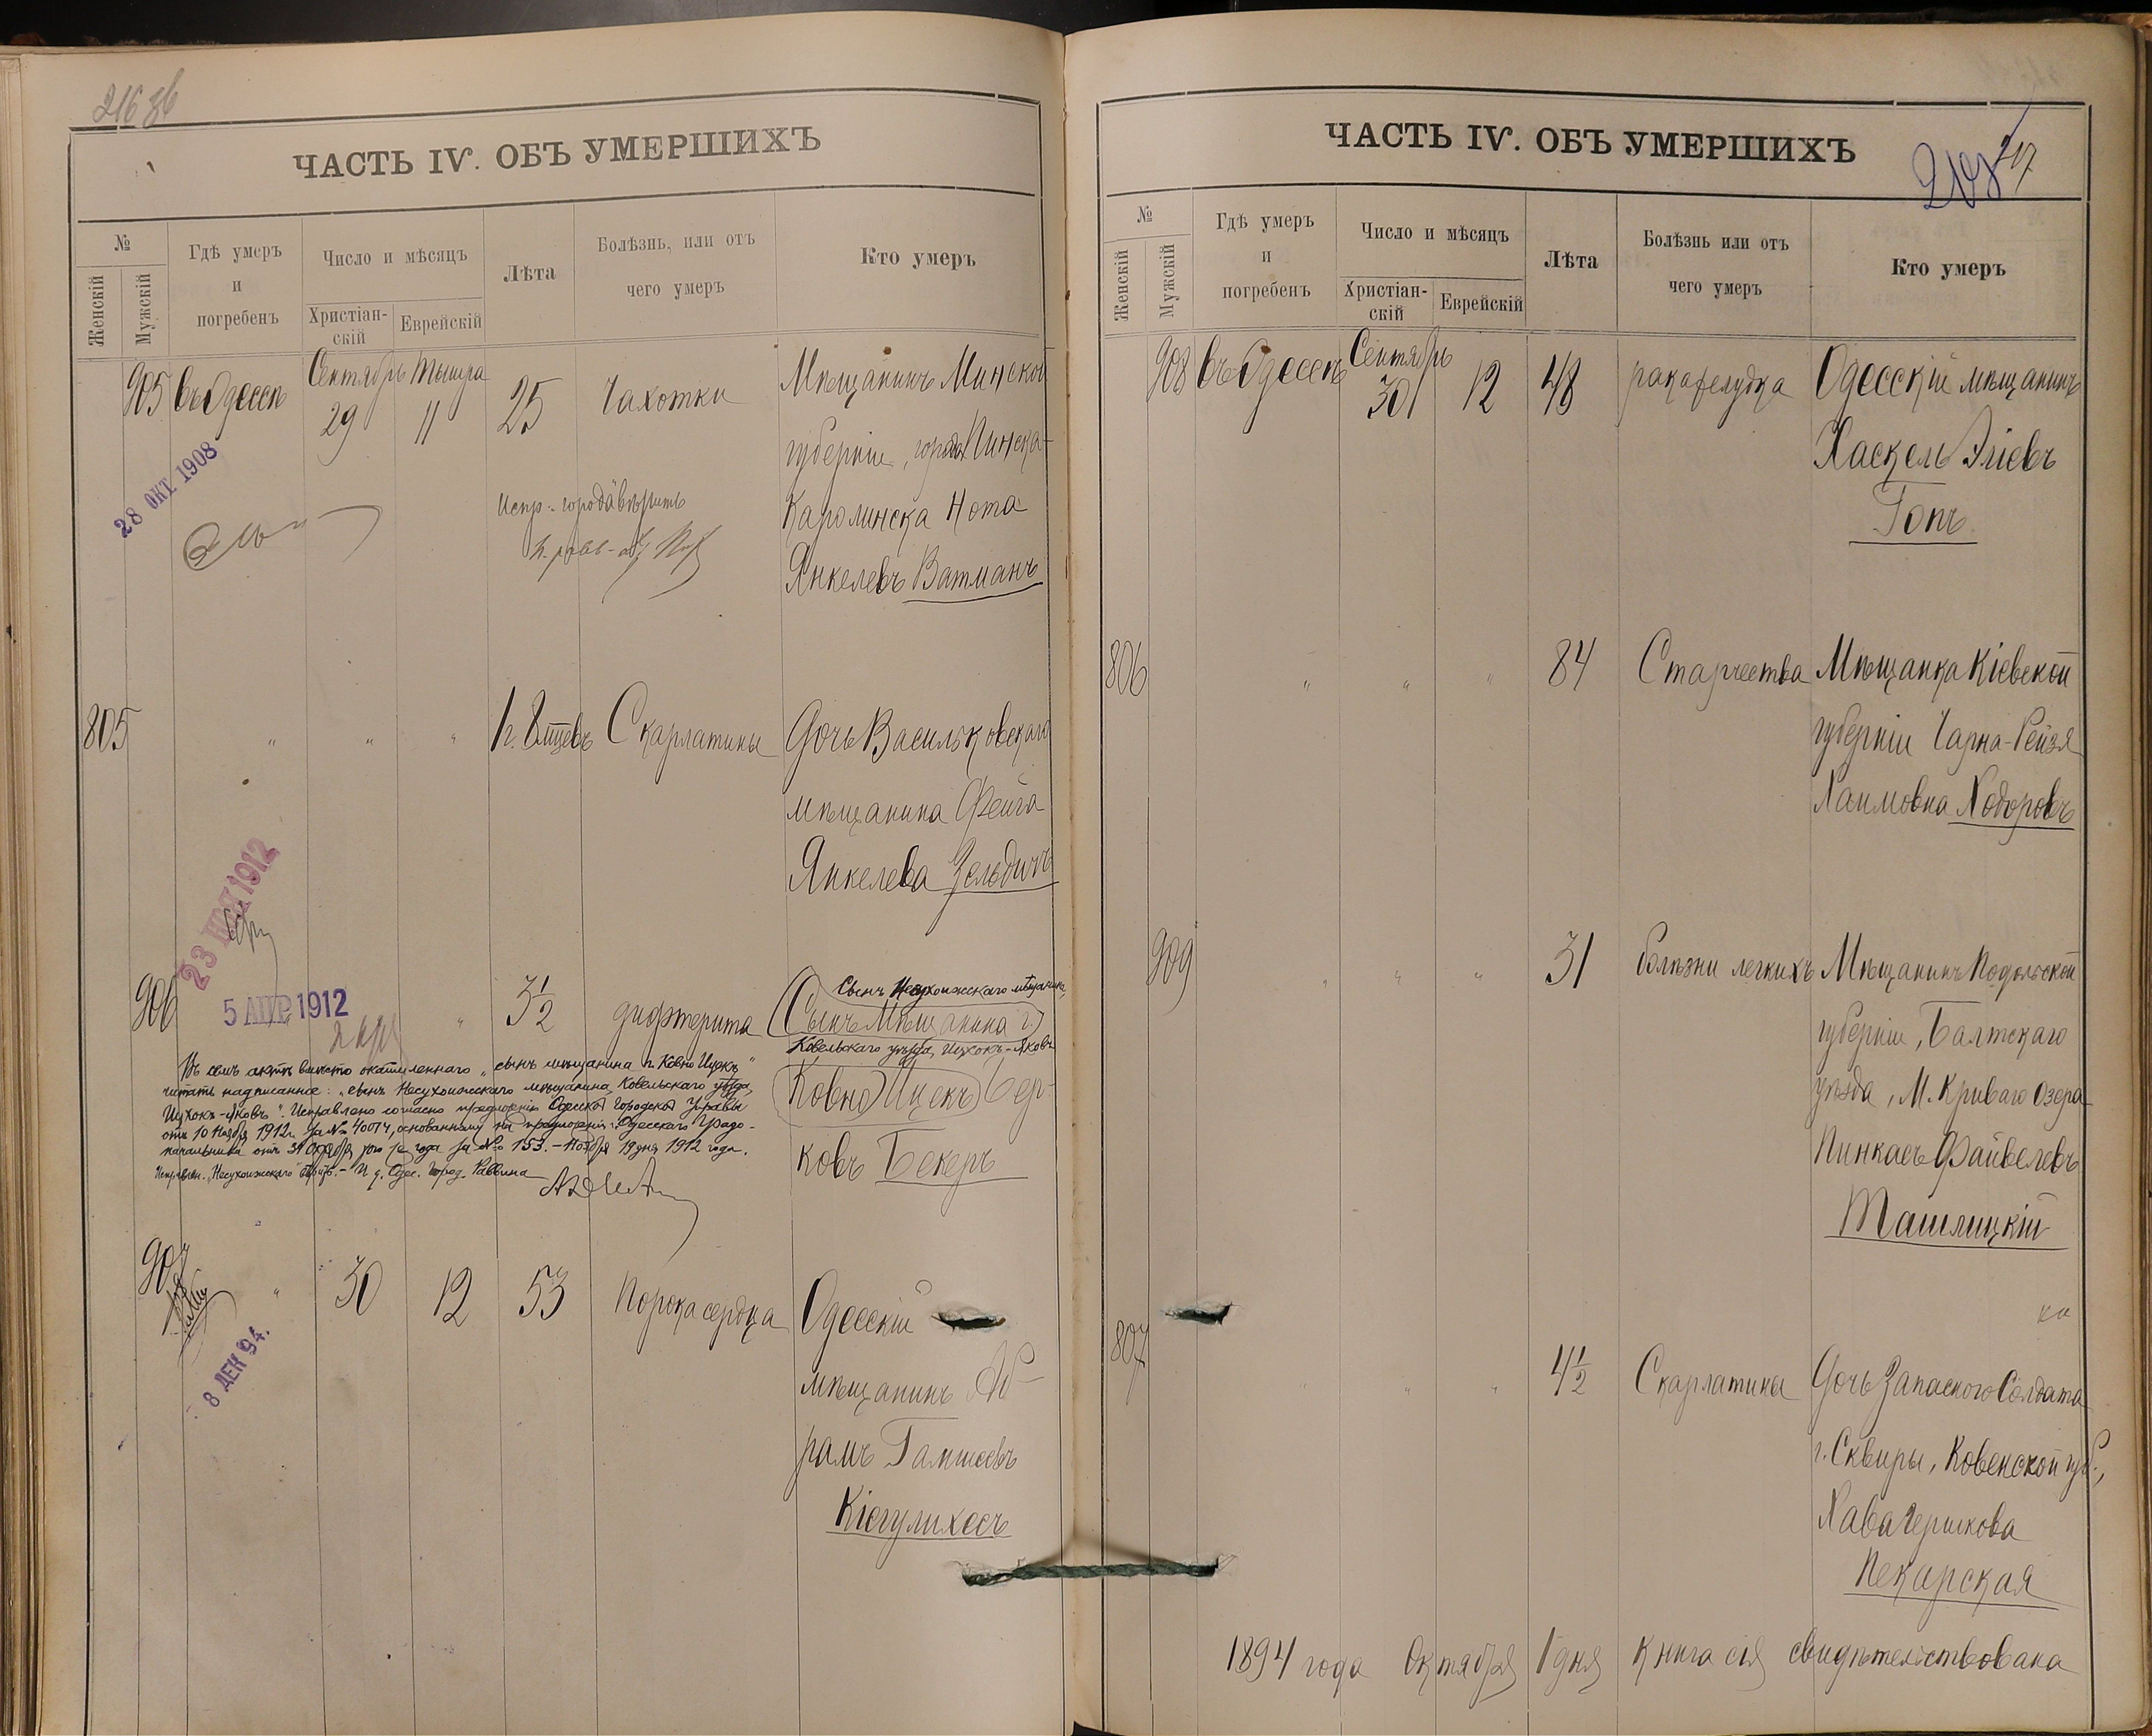 216 об
ЧАСТЬ IV. ОБЪ УМЕРШИХЪ
№
Женскій
Мужскій
Гдѣ умеръ
и
погребенъ
Число и мѣсяцъ
Христіан-
скій
Еврейскій
Лѣта
Болѣзнь, или отъ
чего умеръ
Кто умеръ
905 Въ Одессѣ Сентябрь 29 Тышра 11 25 Чахотки Мѣщанинъ Минской
губерніи, города Пинска-
Каролинска Нота
Янкелевъ Ватманъ
28 ОКТ 1908
Испр. "города" вѣрить
805 " " " 1 г. 8 мцевъ Скарлатины Дочь Васильковскаго
мѣщанина Фейга
Янкелева Зельдичъ
23 1912
906 " 3½ дифтерита
Сынъ Несухоижскаго мѣщанина,
Сынъ Мѣщанина г.
Ковельскаго уѣзда, Ицхокъ-Яковъ
Ковно Ицекъ Бер-
ковъ Бекеръ
5 АПР 1912
Въ семъ актѣ вмѣсто окаймленнаго "сынъ мѣщанина г. Ковно Ицекъ"
читать надписанное: "сынъ Несухоижскаго мѣщанина, Ковельскаго уѣзда,
Ицхокъ-Яковъ". Исправлено согласно предложенію Одесской Городской Управы
отъ 10 Ноября 1912 г. за № 40074, основанному на предложеніи Одесскаго Градо-
начальника отъ 31 Октября того же года за № 153. - Ноября 19 дня 1912 года.
Исправлен. "Несухоижскаго" вѣрить. - И. д. Одес. Город. Раввина
907 " 30 12 53 Порока сердца Одесскій
мѣщанинъ Аб-
рамъ Гамшеевъ
Кіегулихесъ
8 ДЕК 94.
ЧАСТЬ IV. ОБЪ УМЕРШИХЪ
217
№
Женскій
Мужскій
Гдѣ умеръ
и
погребенъ
Число и мѣсяцъ
Христіан-
скій
Еврейскій
Лѣта
Болѣзнь или отъ
чего умеръ
Кто умеръ
908 Въ Одессѣ Сентябрь 30 12 48 рака желудка Одесскій мѣщанинъ
Хаскель Эліевъ
Гопъ
806 " " " 84 Старчества Мѣщанка Кіевской
губерніи Чарна-Рейзя
Хаимовна Ходоровъ
909 " " " 31 болѣзни легкихъ Мѣщанинъ Подольской
губерніи, Балтскаго
уѣзда, М. Криваго Озера
Пинкасъ Файвелевъ
Ташлицкій
807 " " " 4½ Скарлатины Дочь Запаснаго Солдата
г. Сквиры, Ковенской губ.,
Хава Гершкова
Пекарская
1894 года Октября 1 дня книга сія свидѣтельствована